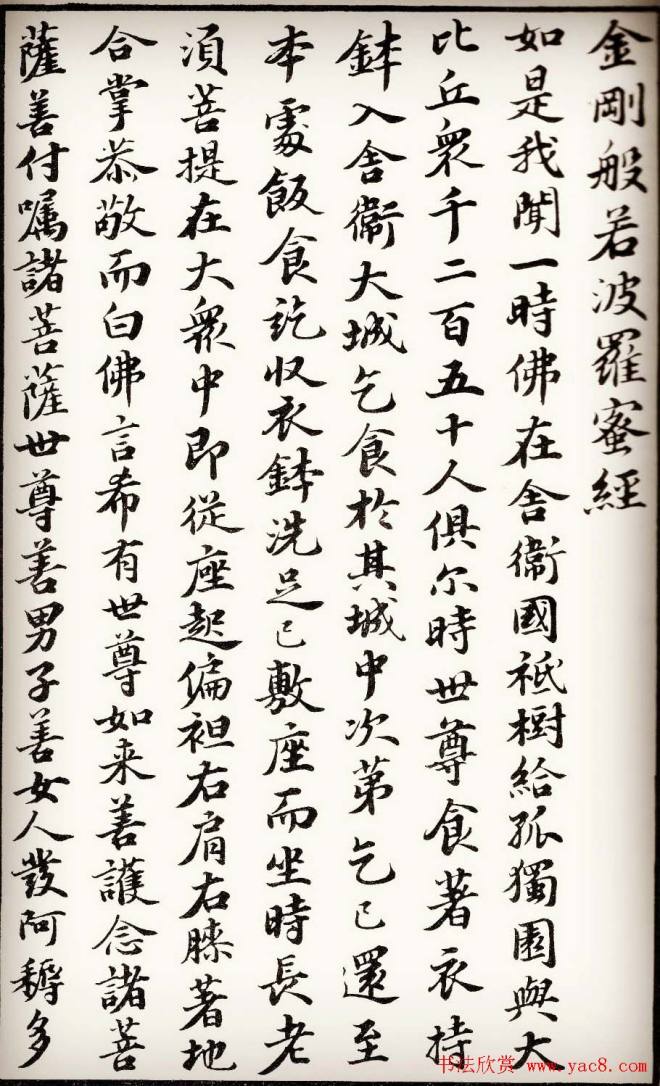 金剛般若波羅蜜經
如是我聞一時佛在舍衞國祇樹給孤獨園與大
比丘衆千二百五十人俱尔時世尊食著衣持
鉢入舍衞大城乞食於其城中次第乞已還至
本處飯食訖収衣鉢洗足已敷座而坐時長老
須菩提在大衆中即從座起偏袒右肩右膝著地
合掌恭敬而白佛言希有世尊如来善護念諸菩
薩善付嘱諸菩薩世尊善男子善女人發阿耨多
书法欣赏 www.yac8.com